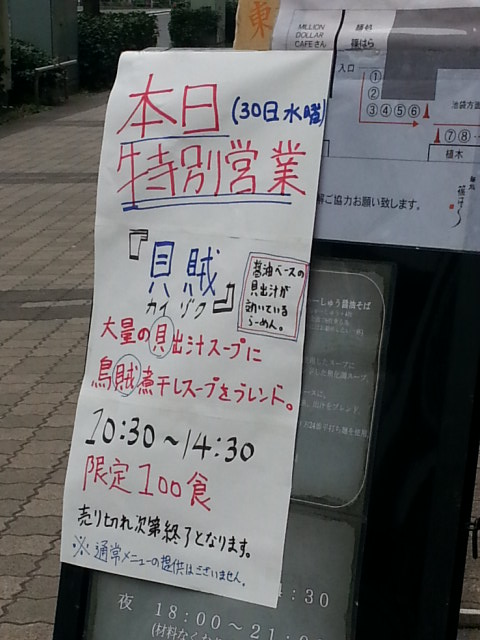 本日(30日水曜)
特別営業
『貝賊』
カイ ゾク
醤油ベースの
貝出汁が
効いている
らーめん。
大量の貝出汁スープに
鳥賊煮干しスープをブレンド。
10:30～14:30
限定100食
売り切れ次第終了となります。
※通常メニューの提供はございません。
東
MILLION
DOLLAR
CAFEさん
麺処
篠はら
入口
①
②
③④⑤⑥
池袋方面
⑦⑧
植木
ご協力お願い致します。
麺処
篠はら
しゅう醤油そば
4:30
夜 18:00～21:0
(材料なく